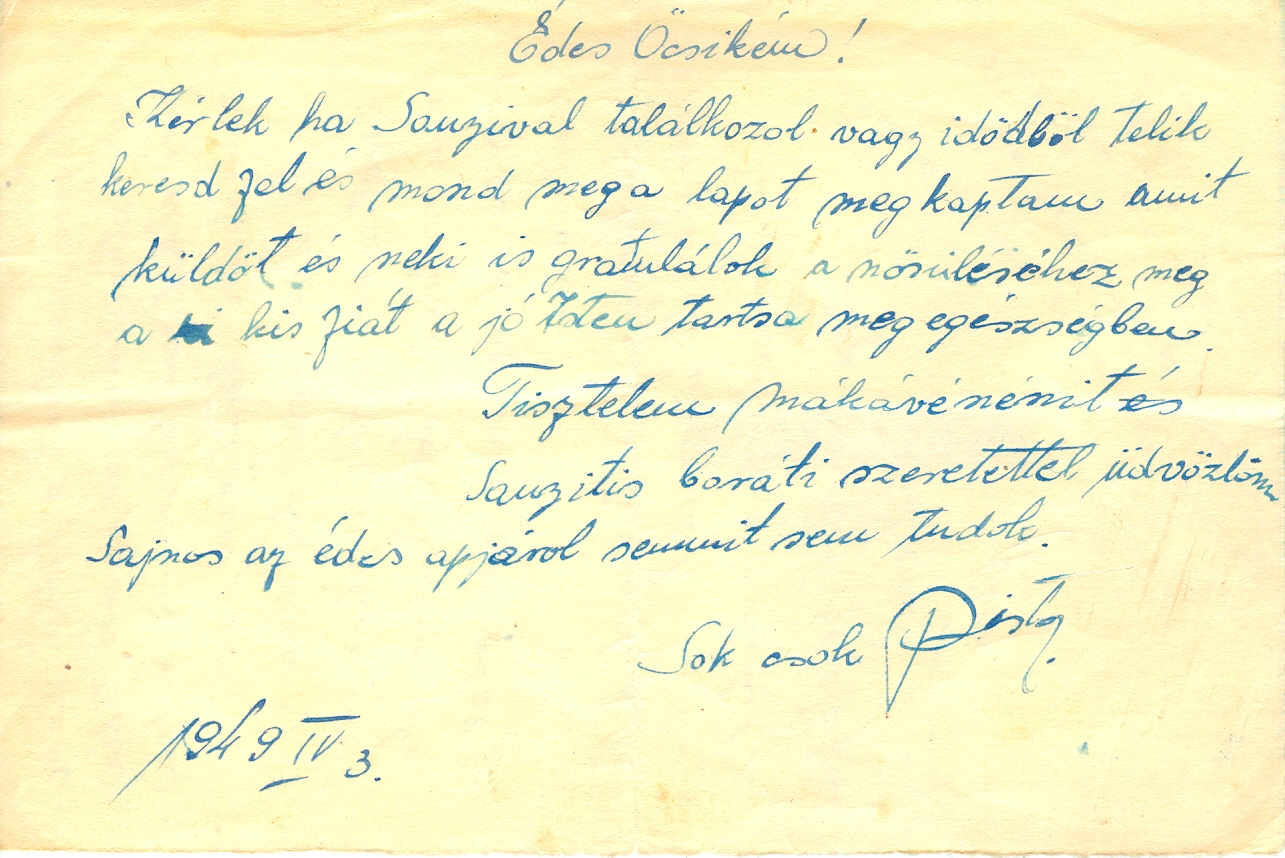 Édes Öcsikém!
Kérlek ha Sanyival találkozol vagy idődből telik
keresd fel és mond meg a lapot megkaptam amit
küldöt és neki is gratulálok a nősüléséhez meg
a kis fiát a jó Isten tartsa meg egészségben.
Tisztelem nénit és
Sanyitis baráti szeretettel üdvözlöm
Sajnos az édes apjárol semmit sem tudok.
Sok csok Pista.
1949 IV 3.